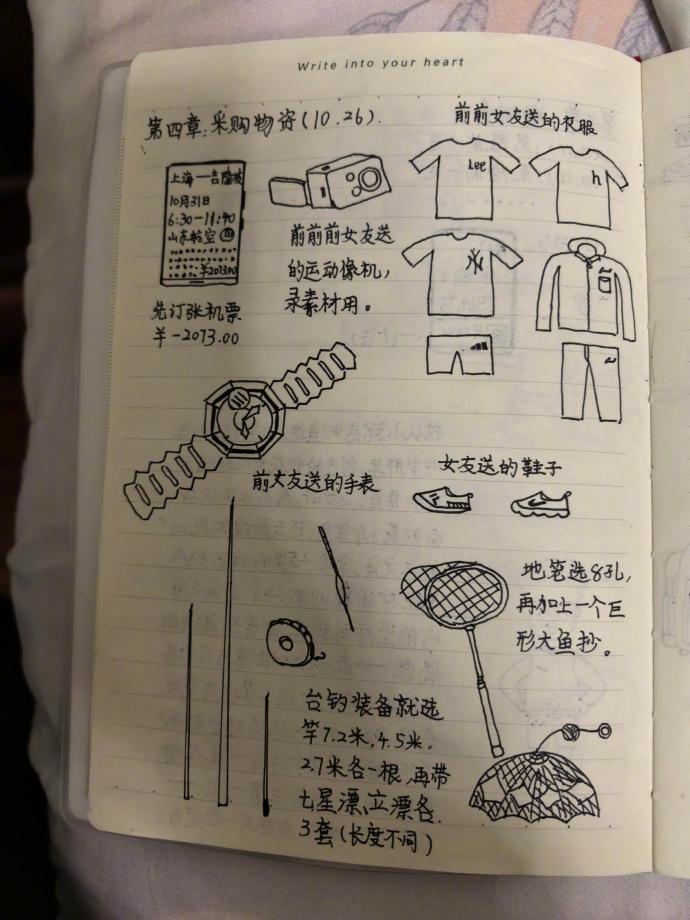 Write into your heart
第四章:采购物资(10.26).
前前女友送的衣服
上海—吉隆坡
10月31日
6:30-11:40
山东航空 四
¥2073.00
先订张机票
¥-2073.00
前前前女友送
的运动像机,
录素材用。
Lee
h
NY
前女友送的手表
女友送的鞋子
地笔选8孔,
再加上一个巨
形大鱼抄。
台钓装备就选
竿7.2米,4.5米,
2.7米各一根,再带
七星漂,立漂各.
3套(长度不同)